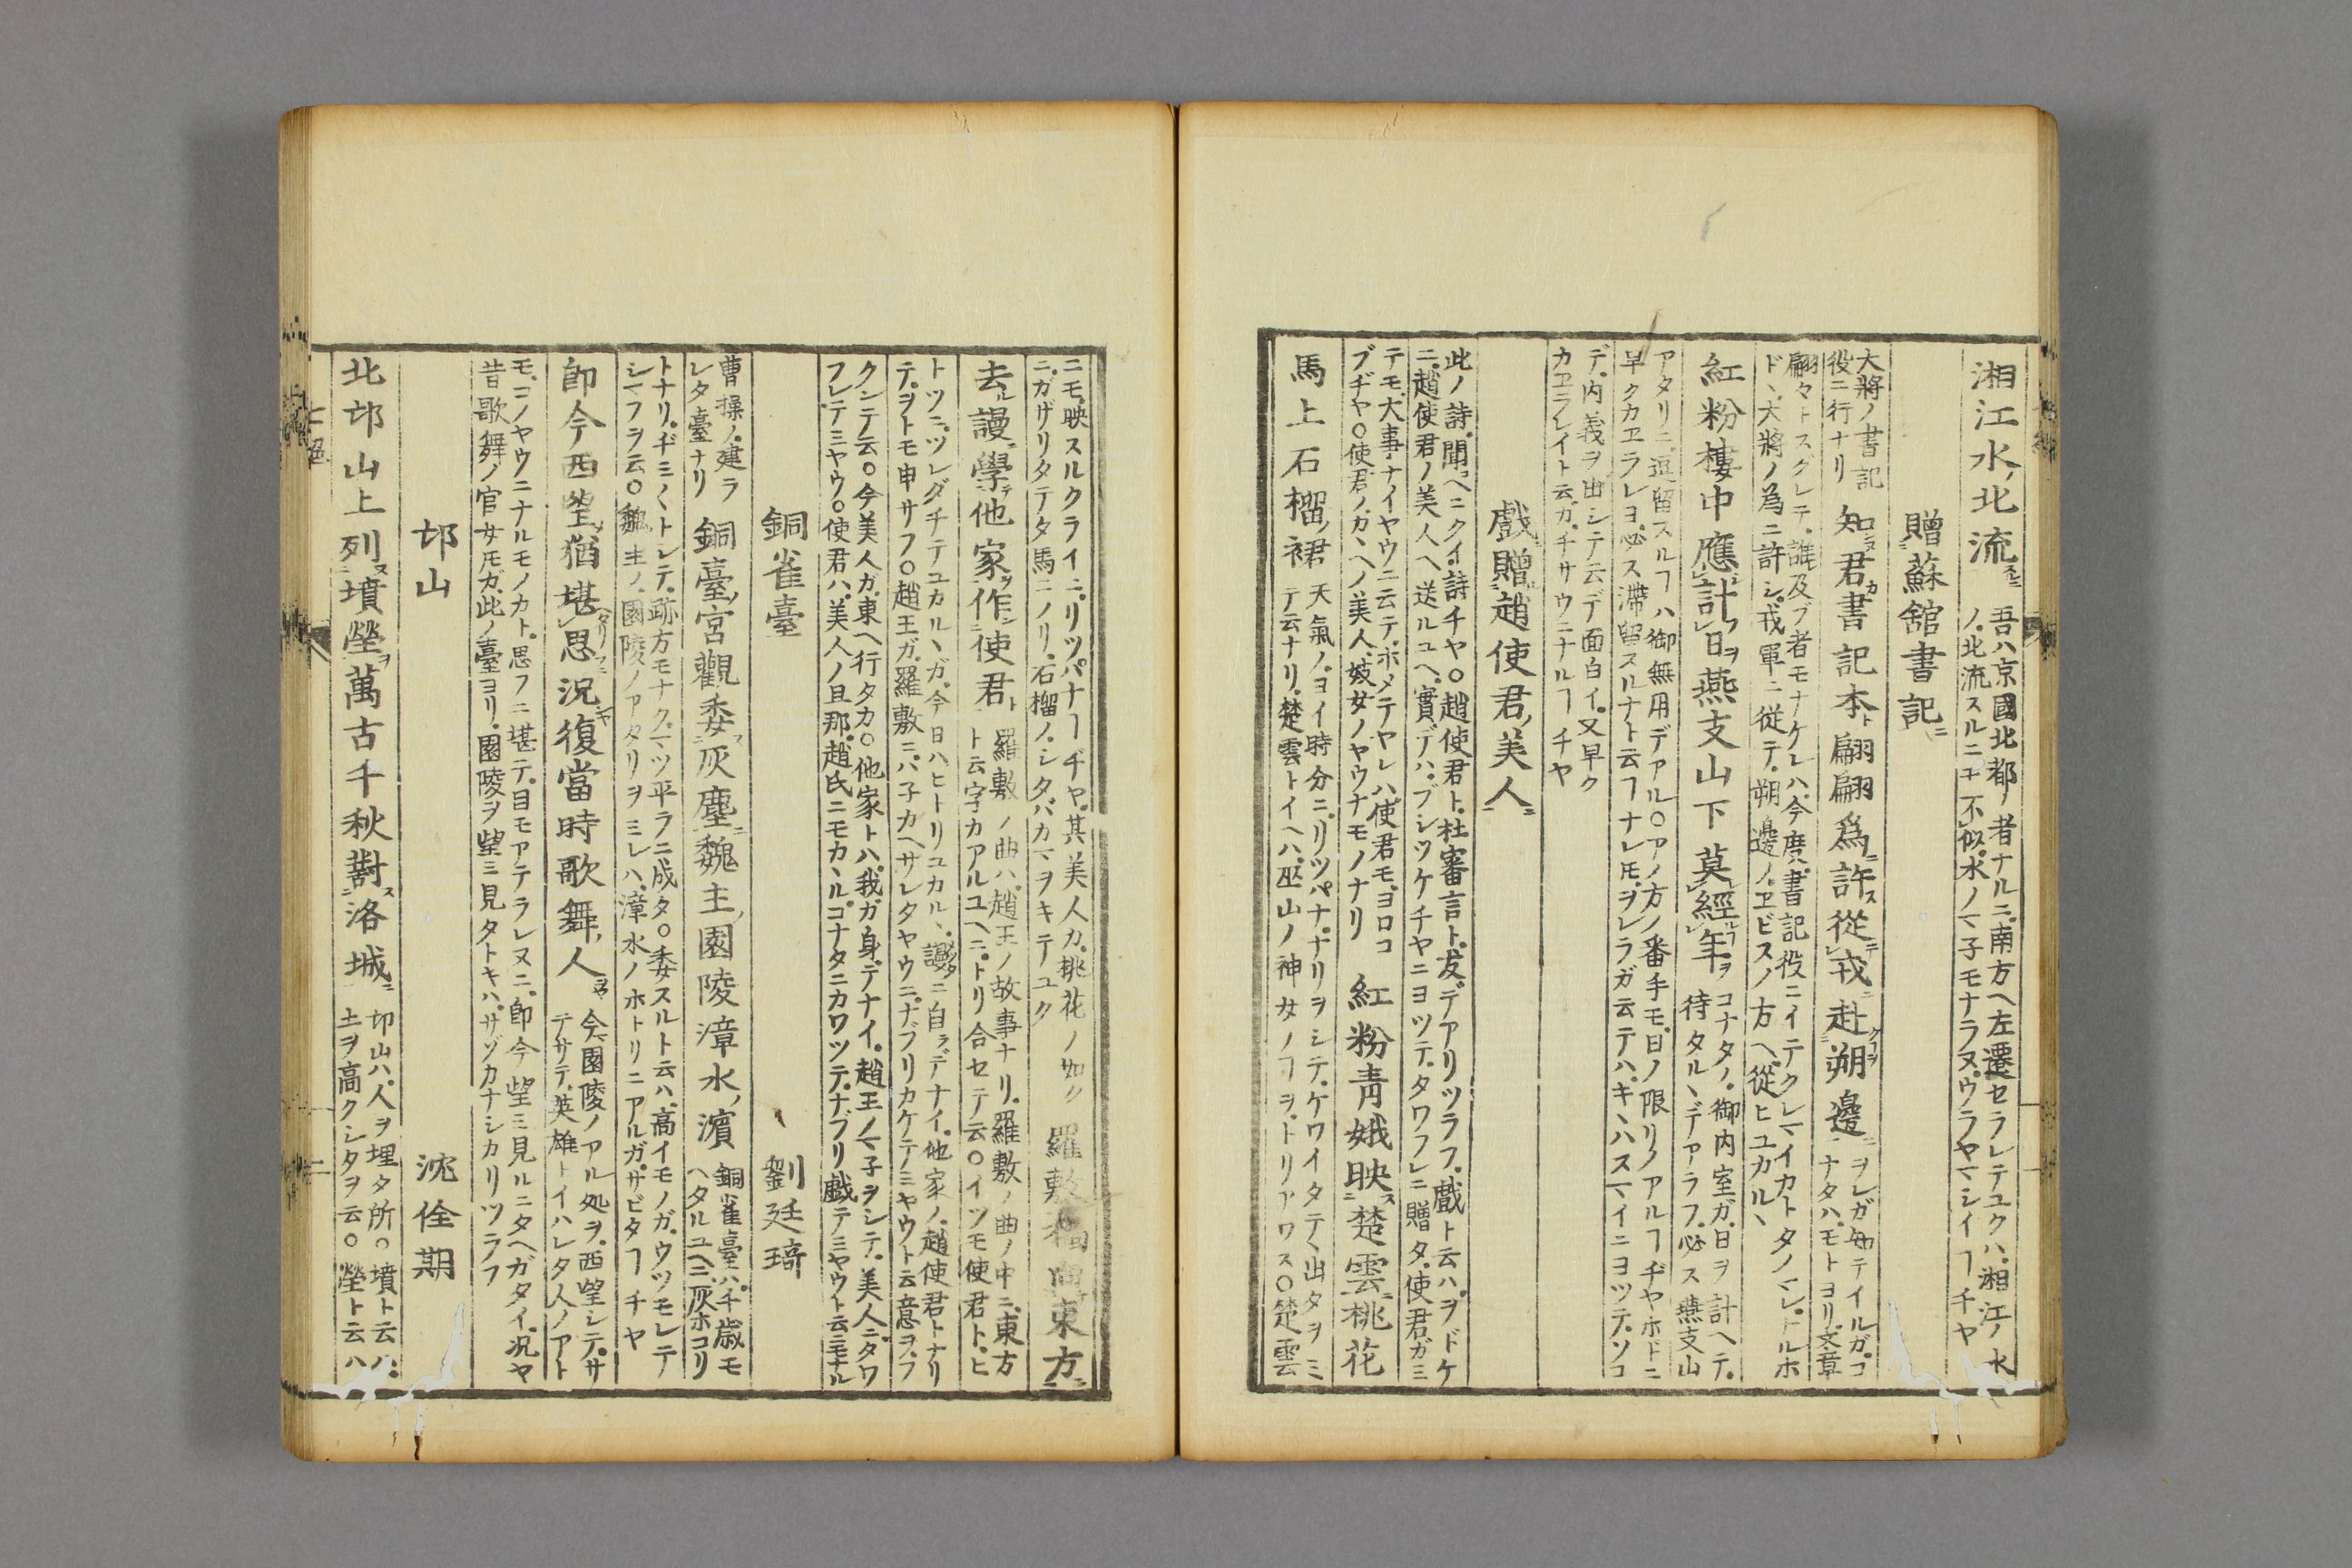 湘江水ノ北流スルニ 吾ハ京國北都ノ者ナルニ南方ヘ左遷セラレテユクハ湘江ノ水
ノ北流スルニ 不似水ノマ子モナラヌウラヤマシイヿチヤ
贈蘇舘書記ニ
大將ノ書記
役ニ行ナリ
知ヌ君カ書記本ト翩翩爲ニ許ス從戎ニ赴朔邊ニ
ヲレガ知テイルガコ
ナタハモトヨリ文章
翩々トスグレテ誰及ブ者モナケレハ今度書記役ニイテクレマイカトタノマレドルホ
ドヽ大將ノ為ニ許シ戎軍ニ從テ朔邊ノヱビスノ方ヘ從ヒユカルヽ
紅粉樓中應計日ヲ燕支山下莫經年ヲ
コナタノ御内室ガ日ヲ計ヘテ
待タルヽデアラフ必ス燕支山
アタリニ逗留スルヿハ御無用デアル○アノ方ノ番手モ日ノ限リノアルヿヂヤホドニ
早クカヱラレヨ必ス滞留スルナト云ヿナレ𪜈ヲレラガ云テハキヽハスマイニヨツテソコ
デ内義ヲ出シテ云デ面白イ又早ク
カヱラレイト云ガチサウニナルヿチヤ
戲贈趙使君ノ美人ニ
此ノ詩聞ヘニクイ詩チヤ○趙使君ト杜審言ト友デアリツラフ戲ト云ハヲドケ
ニ趙使君ノ美人ヘ送ルユヘ實デハブシツケチヤニヨツテタワフレニ贈タ使君ガミ
テモ大事ナイヤウニ云テホメテヤレハ使君モヨロコ
ブヂヤ○使君ノカヽヘノ美人妓女ノヤウナモノナリ
紅粉青娥映ス楚雲ニ桃花
馬上石榴ノ裙
天氣ノヨイ時分ニリツパナナリヲシテケワイタテヽ出タヲミ
テ云ナリ楚雲トイヘハ巫山ノ神女ノヿヲトリアワス○楚雲
ニモ映スルクライニリツパナヿヂヤ其美人カ桃花ノ如ク
ニガザリタテタ馬ニノリ石榴ノシタバカマヲキテユク
羅敷獨向東方ニ
去ル謾ニ學テ他家ヲ作使君ト
羅敷ノ曲ハ趙王ノ故事ナリ羅敷ノ曲ノ中ニ東方
ト云字カアルユヘニトリ合セテ云○イツモ使君トヒ
トツニツレダチテユカルヽガ今日ハヒトリユカルヽ謾ニ自ラデナイ他家ノ趙使君トナリ
テヲトモ申サフ○趙王ガ羅敷ニハ子カヘサレタヤウニナブリカケテミヤウト云意ヲフ
クンテ云○今美人ガ東ヘ行タカ○他家トハ我ガ身デナイ趙王ノマ子ヲシテ美人ニタワ
フレテミヤウ○使君ハ美人ノ旦那趙氏ニモカヽルコナタニカワツテナブリ戲テミヤウト云ニモナル
銅雀臺 劉廷琦
曹操ノ建ラ
レタ臺ナリ
銅臺ノ宮觀委ス灰塵ニ魏主ノ園陵漳水ノ濱
銅雀臺ハ千歳モ
ヘタルユヘニ灰ホコリ
トナリヂミ〱トレテ跡方モナクマツ平ラニ成タ○委スルト云ハ高イモノガウツモレテ
シマフヲ云○魏主ノ園陵ノアタリヲミレハ漳水ノホトリニアルガサビタヿチヤ
即今西望猶堪思況復當時歌舞ノ人ヲヤ
今園陵ノアル処ヲ西望シテサ
テサテ英雄トイハレタ人ノアト
モコノヤウニナルモノカト思フニ堪テ目モアテラレヌニ即今望ミ見ルニタヘガタイ況ヤ
昔歌舞ノ官女𪜈ガ此ノ臺ヨリ園陵ヲ望ミ見タトキハサゾカナシカリツラフ
邙山 沈佺期
北邙山上列ヌ墳塋ヲ萬古千秋對ス洛城ニ
邙山ハ人ヲ埋タ所○墳ト云ハ
土ヲ高クシタヲ云○塋ト云ハ
七絕 二